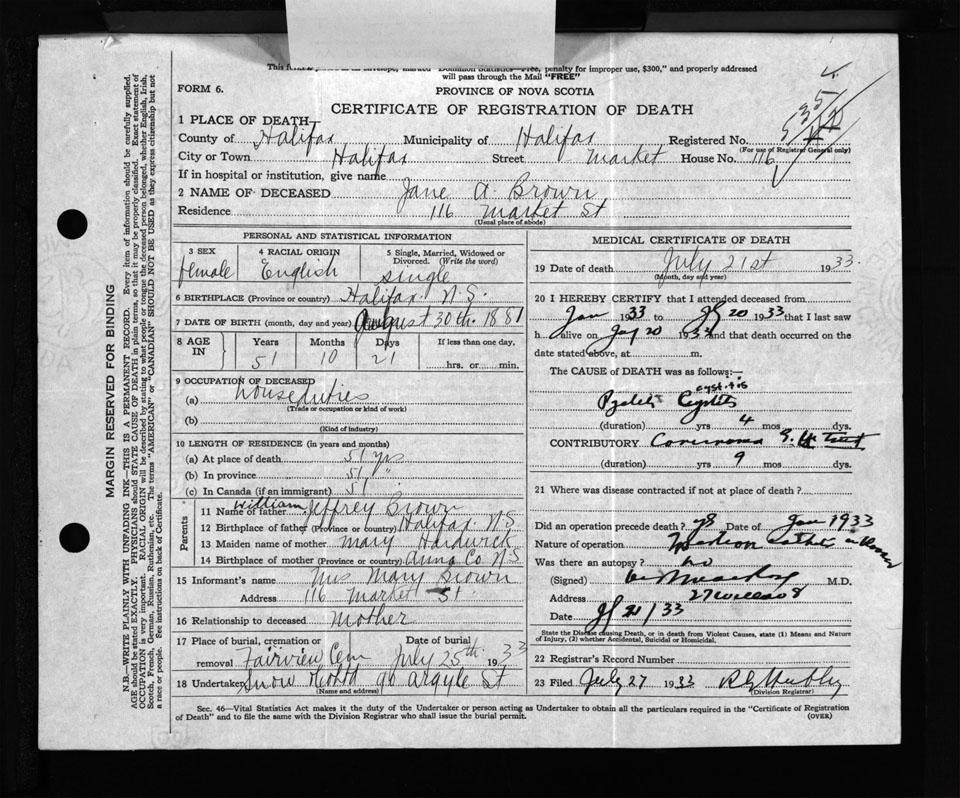 "FREE," penalty for improper use, $300," and properly addressed
will pass through the Mail "FREE"
FORM 6.
PROVINCE OF NOVA SCOTIA
CERTIFICATE OF REGISTRATION OF DEATH
1 PLACE OF DEATH
County of Halifax Municipality of Halifax Registered No.
(For use of Registrar General only)
City or Town Halifax Street Market House No. 116
If in hospital or institution, give name
2 NAME OF DECEASED Jane A. Brown
Residence 116 Market St
(Usual place of abode)
PERSONAL AND STATISTICAL INFORMATION
3 SEX 4 RACIAL ORIGIN 5 Single, Married, Widowed or Divorced. (Write the word)
female English single
6 BIRTHPLACE (Province or country) Halifax N.S.
7 DATE OF BIRTH (month, day and year) August 30th 1881
8 AGE IN Years Months Days If less than one day.
51 10 21 hrs. or min.
9 OCCUPATION OF DECEASED
(a) house duties
(Trade or occupation or kind of work)
(b)
(Kind of industry)
10 LENGTH OF RESIDENCE (in years and months)
(a) At place of death 51 yrs
(b) In province 51 "
(c) In Canada (if an immigrant) 51
Parents
11 Name of father William Jeffrey Brown
12 Birthplace of father (Province or country) Halifax N.S
13 Maiden name of mother Mary Hardwick
14 Birthplace of mother (Province or country) Anna Co N.S
15 Informant's name Mrs Mary Brown
Address 116 Market St
16 Relationship to deceased Mother
17 Place of burial, cremation or removal Date of burial
Fairview Cem July 25th 1933
18 Undertaker Snow 90 Argyle St
(Name and address)
MEDICAL CERTIFICATE OF DEATH
19 Date of death July 21st 1933
(Month, day and year)
20 I HEREBY CERTIFY that I attended deceased from
Jan 1933 to 20 1933 that I last saw
h alive on 20 1933 and that death occurred on the
date stated above, at m.
The CAUSE of DEATH was as follows:
cystitis
(duration) yrs 4 mos dys.
CONTRIBUTORY Carcinoma
(duration) yrs 9 mos dys.
21 Where was disease contracted if not at place of death?
Did an operation precede death? Date of Jan 1933
Nature of operation
Was there an autopsy? no
(Signed) M.D.
Address
Date 21/33
State the Disease causing Death, or in death from Violent Causes, state (1) Means and Nature
of Injury, (2) whether Accidental, Suicidal or Homicidal.
22 Registrar's Record Number
23 Filed July 27 1933
(Division Registrar)
Sec. 46—Vital Statistics Act makes it the duty of the Undertaker or person acting as Undertaker to obtain all the particulars required in the "Certificate of Registration
of Death" and to file the same with the Division Registrar who shall issue the burial permit.
(OVER)
MARGIN RESERVED FOR BINDING
N.B.—WRITE PLAINLY WITH UNFADING INK—THIS IS A PERMANENT RECORD. Every item of information should be carefully supplied.
AGE should be stated EXACTLY. PHYSICIANS should STATE CAUSE OF DEATH in plain terms, so that it may be properly classified. Exact statement of
OCCUPATION is very important. RACIAL ORIGIN will be described by stating to what people or tongue the deceased person belonged, whether English, Irish,
Scotch, French, German, Russian, Ruthenian, etc. The terms "AMERICAN" or "CANADIAN" SHOULD NOT BE USED as they express citizenship but not
a race or people. See instructions on back of Certificate.